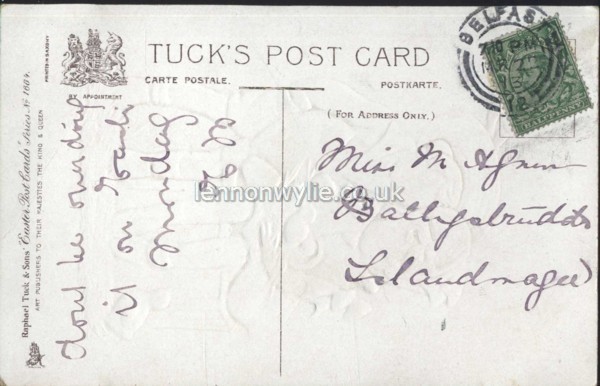 TUCK'S POST CARD
CARTE POSTALE.
POSTKARTE.
BY APPOINTMENT
(FOR ADDRESS ONLY.)
PRINTED IN SAXONY
Raphael Tuck & Sons' "Easter Post Cards" Series No 1604.
ART PUBLISHERS TO THEIR MAJESTIES THE KING & QUEEN
BELFAST
7.10 PM
12
dont be over doing
it on
Monday
Miss M Agnew
Islandmagee
lennonwylie.co.uk